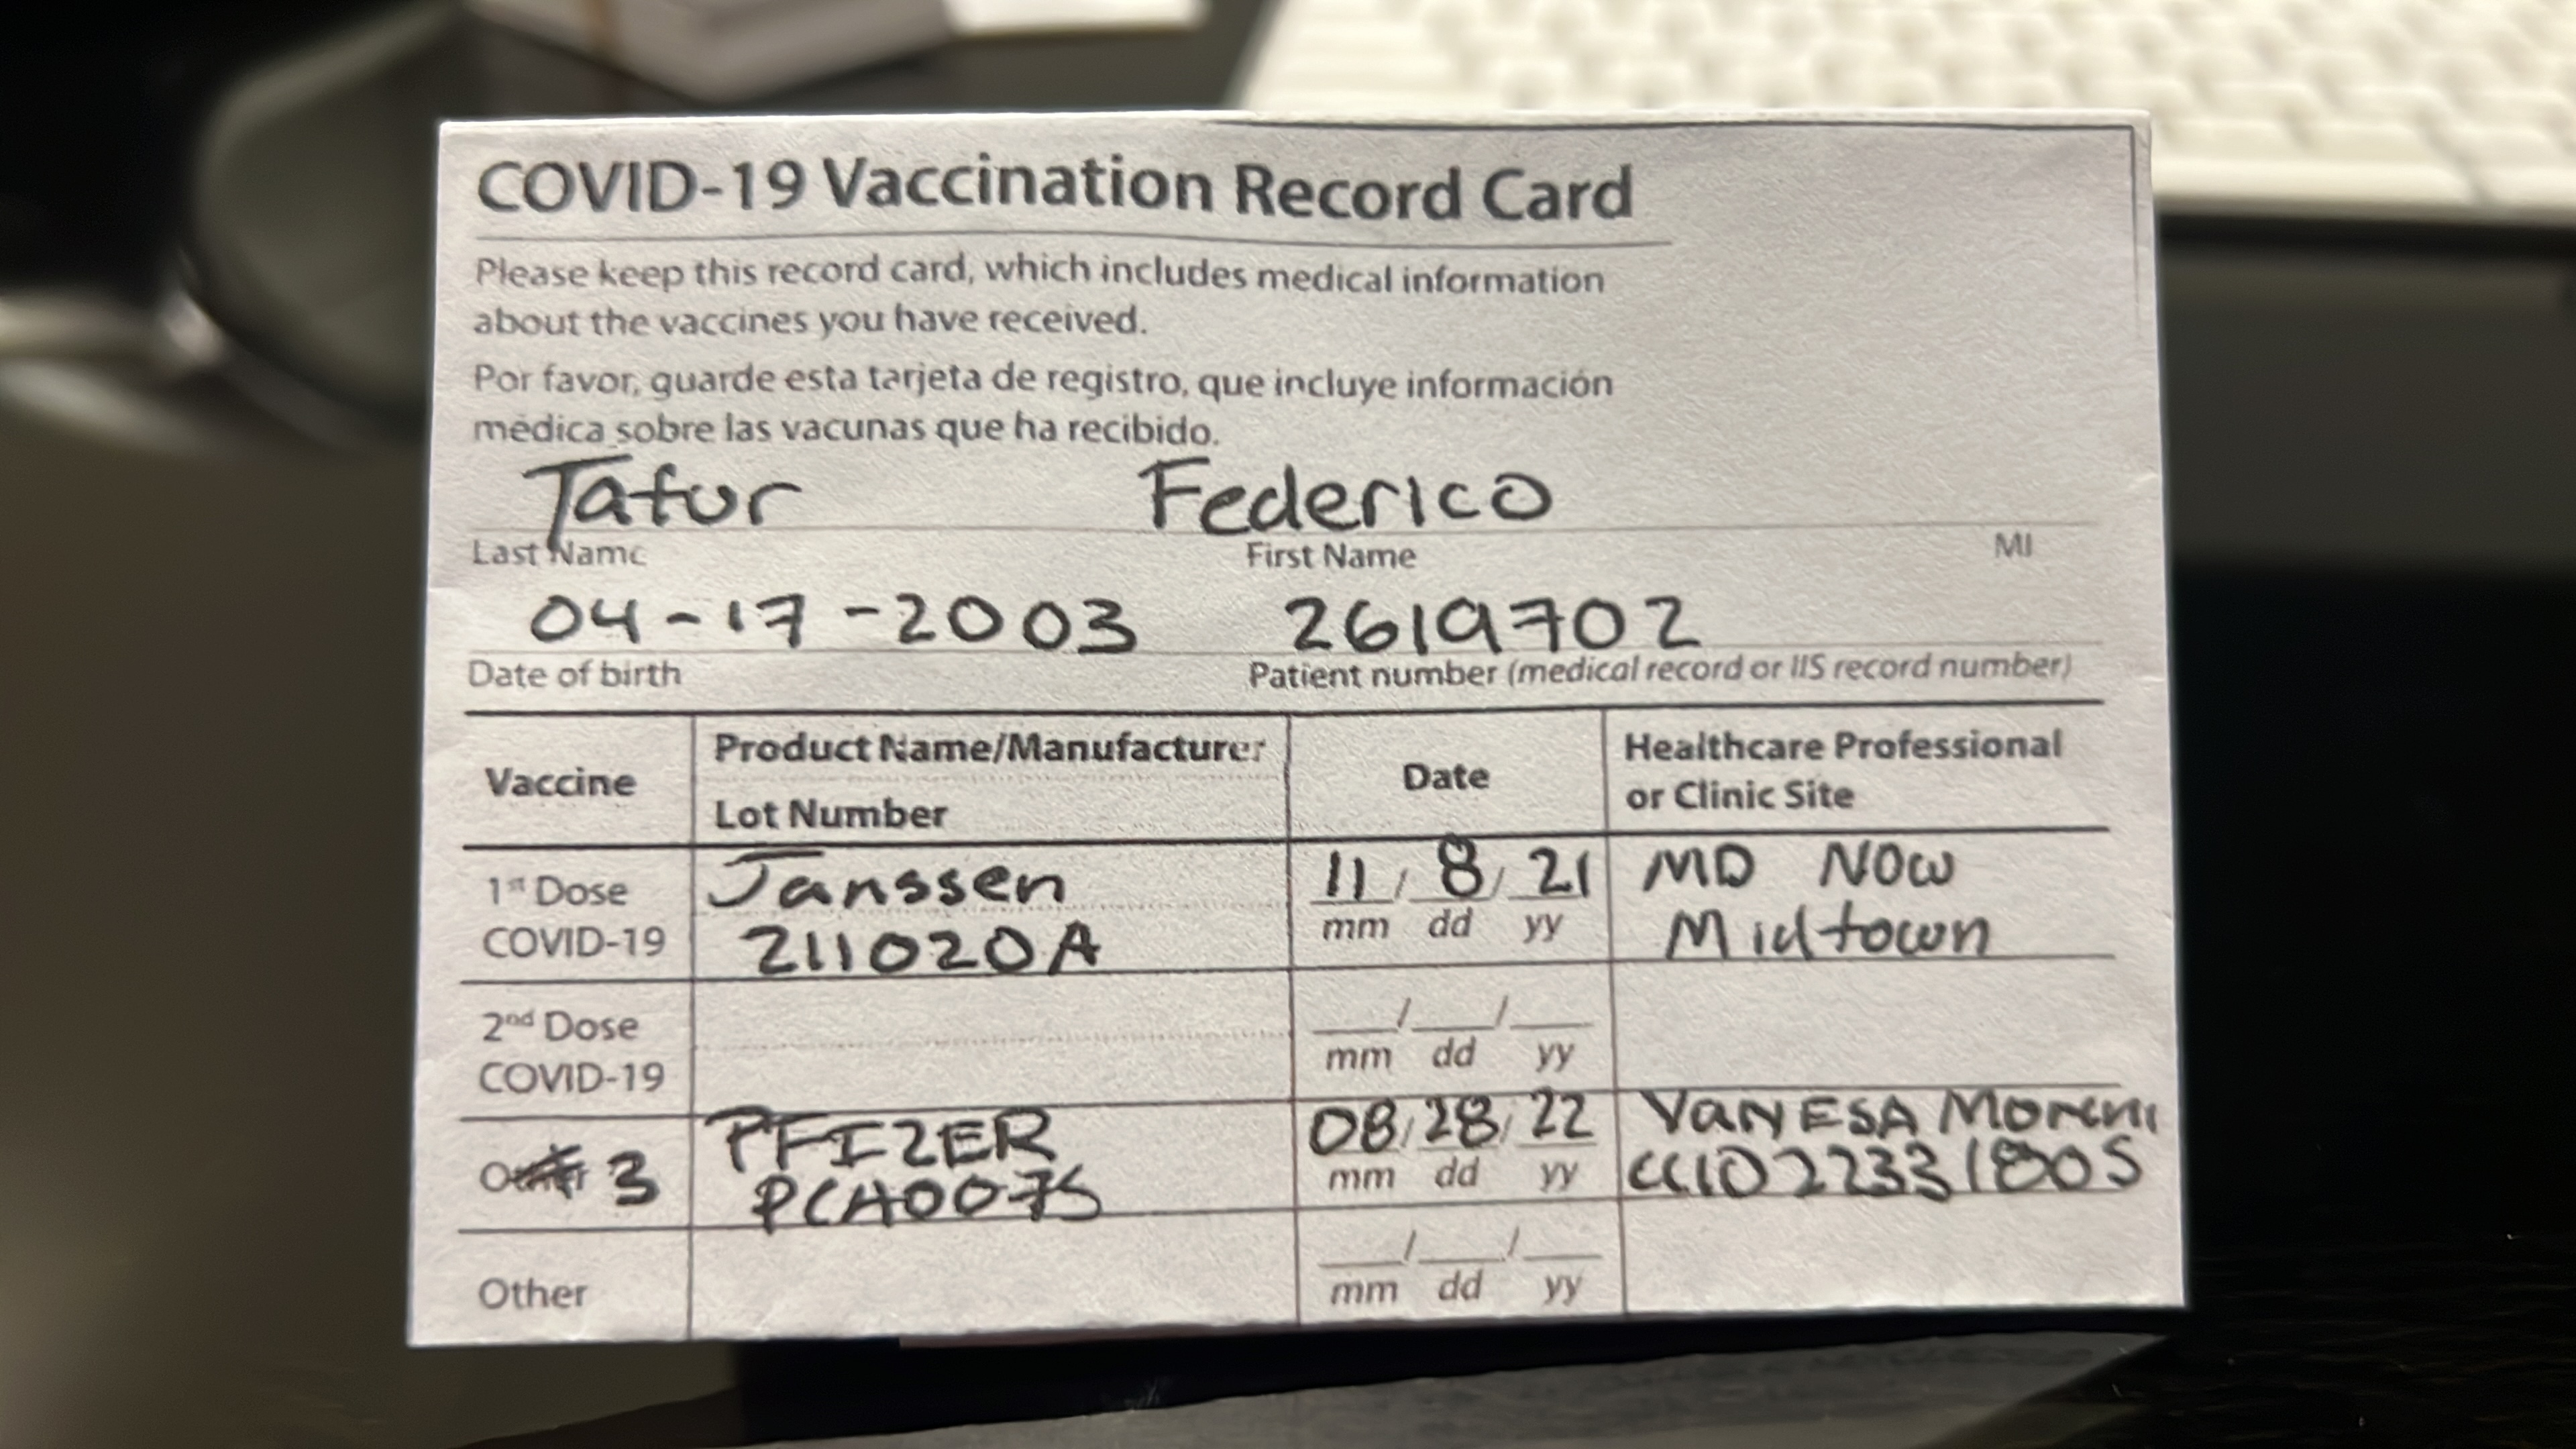 COVID-19 Vaccination Record Card
Please keep this record card, which includes medical information
about the vaccines you have received.
Por favor, guarde esta tarjeta de registro, que incluye información
médica sobre las vacunas que ha recibido.
Tafur Federico
Last Name First Name MI
04-17-2003 2619702
Date of birth Patient number (medical record or IIS record number)
Vaccine Product Name/Manufacturer Date Healthcare Professional
Lot Number or Clinic Site
1st Dose Janssen 11/8/21 MD Now
COVID-19 211020A mm dd yy Midtown
2nd Dose / /
COVID-19 mm dd yy
3 PFIZER 08/28/22 VANESA
mm dd yy
Other / /
mm dd yy